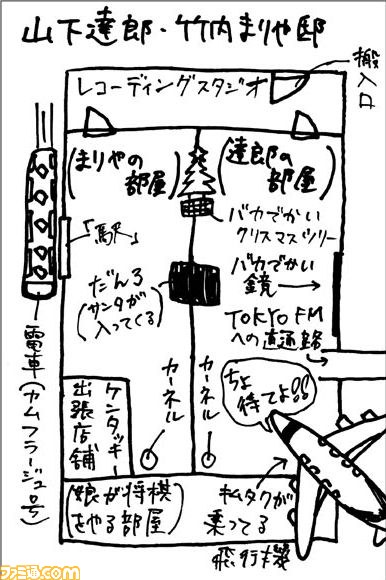 山下達郎・竹内まりや邸
搬入口
レコーディングスタジオ
(まりやの
部屋)
(達郎の
部屋)
バカでかい
クリスマスツリー
「駅」
だんろ
(サンタが
入ってくる)
バカでかい
鏡→
TOKYO FM
への直通路
電車(カムフラージュ号)
カーネル
カーネル
ちょ
待てよ!!
ケンタッキー
出張店舗
(娘が将棋
をやる部屋)
キムタクが
乗ってる
飛行機
ファミ通.com